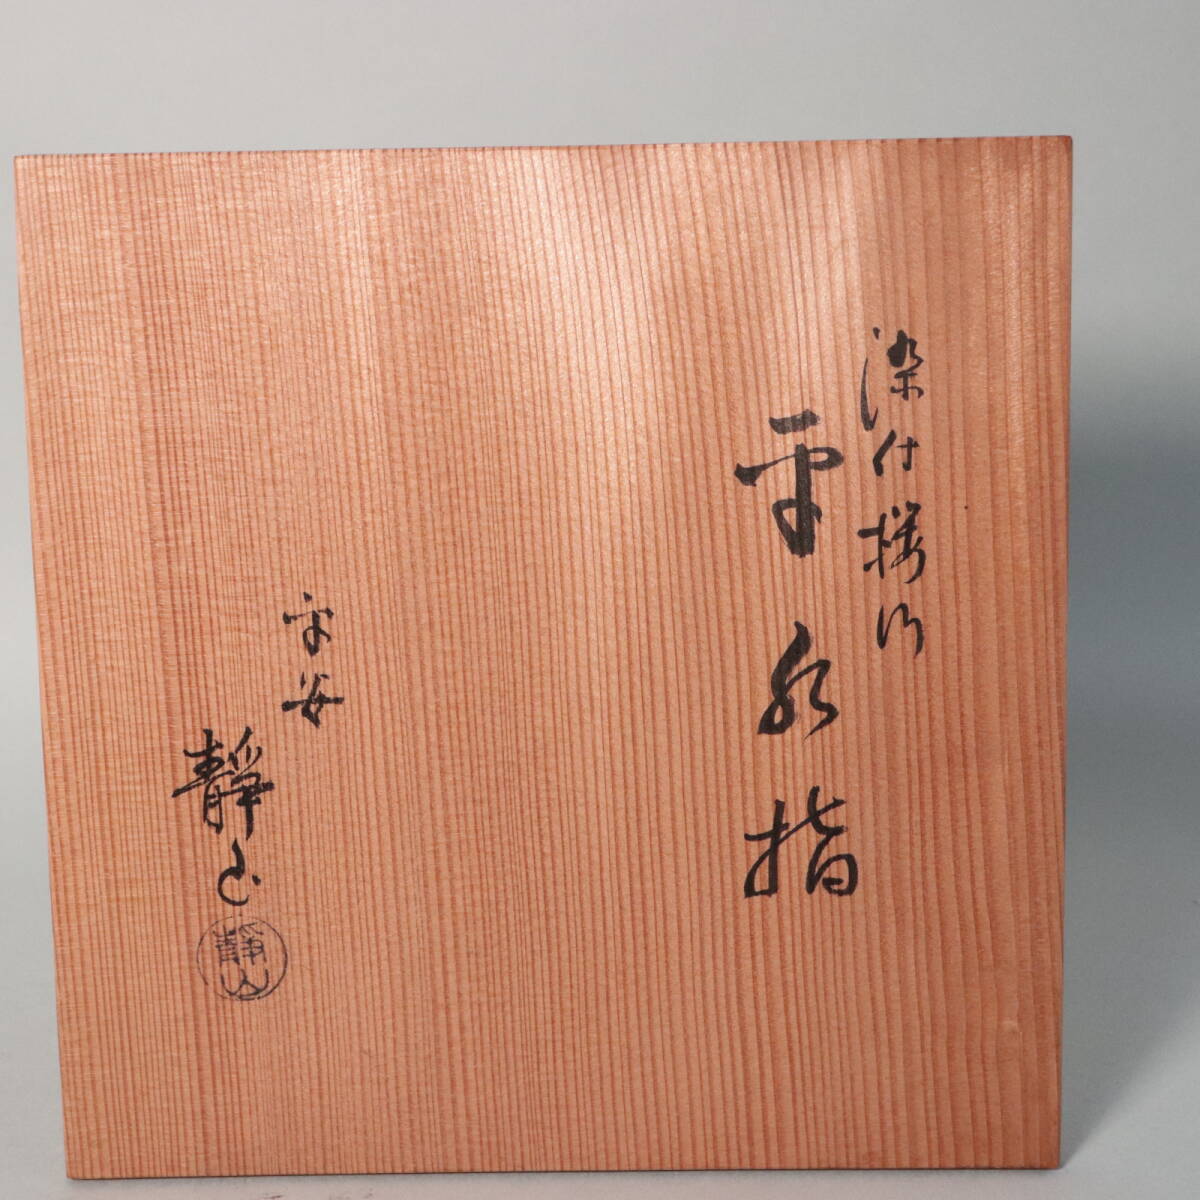 染付桜川
平水指
平安
靜山
靜山